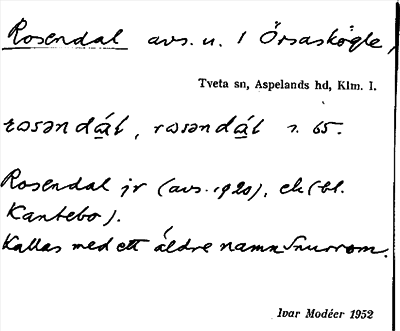 Rosendal avs. u. 1 Örsaskögle,
Tveta sn, Aspelands hd, Klm. l.
rosəndál, rosəndál s. 65.
Rosendal jr (avs. 1920), ek (bl.
Kantebo).
Kallas med ett äldre namn Snurrom.
Ivar Modéer 1952